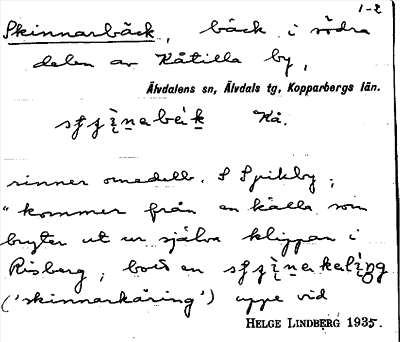 1-2
Skinnarbäck, bäck i södra
delen av Kåtilla by,
Älvdalens sn, Älvdals tg, Kopparbergs län.
Kå.
rinner omedelb. S Spikby;
"kommer från en källa som
bryter ut ur själva klippan i
Risberg; bodd en
('skinnarkäring') uppe vid
HELGE LINDBERG 1935.